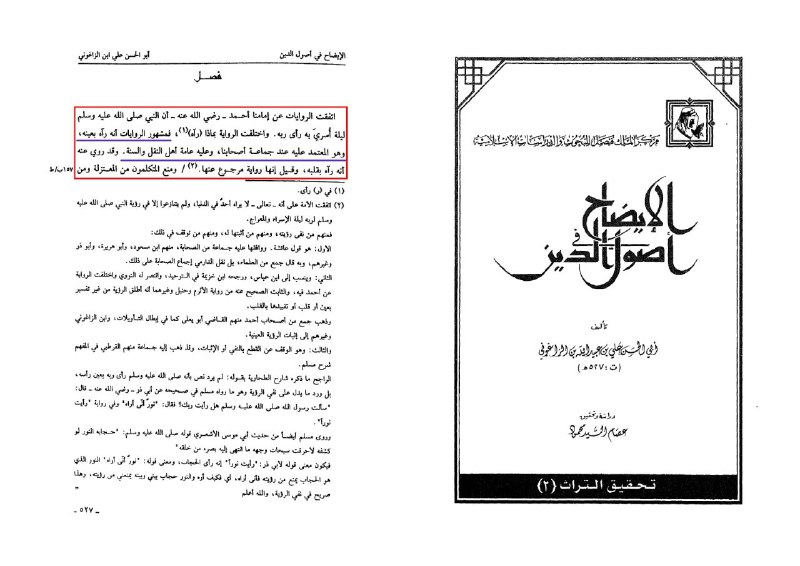 الإيضاح في أصول الدين
أبو الحسن علي ابن الزاغوني
فصـــل
اتفقت الروايات عن إمامنا أحمد - رضي الله عنه - أن النبي صلى الله عليه وسلم
ليلة أُسريَ به رأى ربه. واختلفت الرواية بماذا (رآه)(١)، فمشهور الروايات أنه رآه بعينه،
وهو المعتمد عليه عند جماعة أصحابنا، وعليه عامة أهل النقل والسنة. وقد روي عنه
أنه رآه بقلبه، وقيل إنها رواية مرجوع عنها.(٢) / ومنع المتكلمون من المعتزلة ومن
١٥٧ب/ط
(١) في (و) رأى.
(٢) اتفقت الأمة على أنه - تعالى - لا يراه أحدٌ في الدنيا، ولم يتنازعوا إلا في رؤية النبي صلى الله عليه
وسلم لربه ليلة الإسراء والمعراج.
فمنهم من نفى رؤيته، ومنهم من أثبتها له، ومنهم من توقف في ذلك.
الأول: هو قول عائشة. ووافقها عليه جماعة من الصحابة، منهم ابن مسعود، وأبو هريرة، وأبو ذر
وغيرهم، وبه قال جمع من العلماء، بل نقل الدارمي إجماع الصحابة على ذلك.
الثاني: وينسب إلى ابن عباس، ورجحه ابن خزيمة في التوحيد، وانتصر له النووي واختلفت الرواية
عن أحمد فيه، والثابت الصحيح عنه من رواية الأثرم وحنبل وغيرهما أنه أطلق الرؤية من غير تفسير
بعين أو قلب أو تقييدها بالقلب.
وذهب جمع من أصحاب أحمد منهم القاضي أبو يعلى كما في إبطال التأويلات، وابن الزاغوني
وغيرهم إلى إثبات الرؤية العينية.
والثالث: وهو الوقف عن القطع بالنفي أو الإثبات، وقد ذهب إليه جماعة منهم القرطبي في المفهم
شرح مسلم.
الراجح ما ذكره شارح الطحاوية بقوله: لم يرد نص بأنه صلى الله عليه وسلم رأى ربه بعين رأسه،
بل ورد ما يدل على نفي الرؤية وهو ما رواه مسلم في صحيحه عن أبي ذر - رضي الله عنه - قال:
"سألت رسول الله صلى الله عليه وسلم هل رأيت ربك؟ فقال: "نورٌ أنّى أراه" وفي رواية "رأيت
نوراً".
وروى مسلم أيضاً من حديث أبي موسى الأشعري قوله صلى الله عليه وسلم: "حجابه النور لو
كشفه لأحرقت سبحات وجهه ما انتهى إليه بصره من خلقه"
فيكون معنى قوله لأبي ذر: "رأيت نوراً" إنه رأى الحجاب، ومعنى قوله: "نورٌ أنّى أراه" النور الذي
هو الحجاب يمنع من رؤيته فأنّى أراه، أي فكيف أراه والنور حجاب بيني وبينه يمنعني من رؤيته، وهذا
صريح في نفي الرؤية، والله أعلم
- ٥٢٧ -
مركز الملك فيصل للبحوث والدراسات الإسلامية
الإيضاح
في
أصول الدين
تأليف
أبي الحسن علي بن عبيد الله بن الزاغوني
(ت: ٥٢٧هـ)
دراسة وتحقيق
عصام السيد محمود
تحقيق التراث (٢)